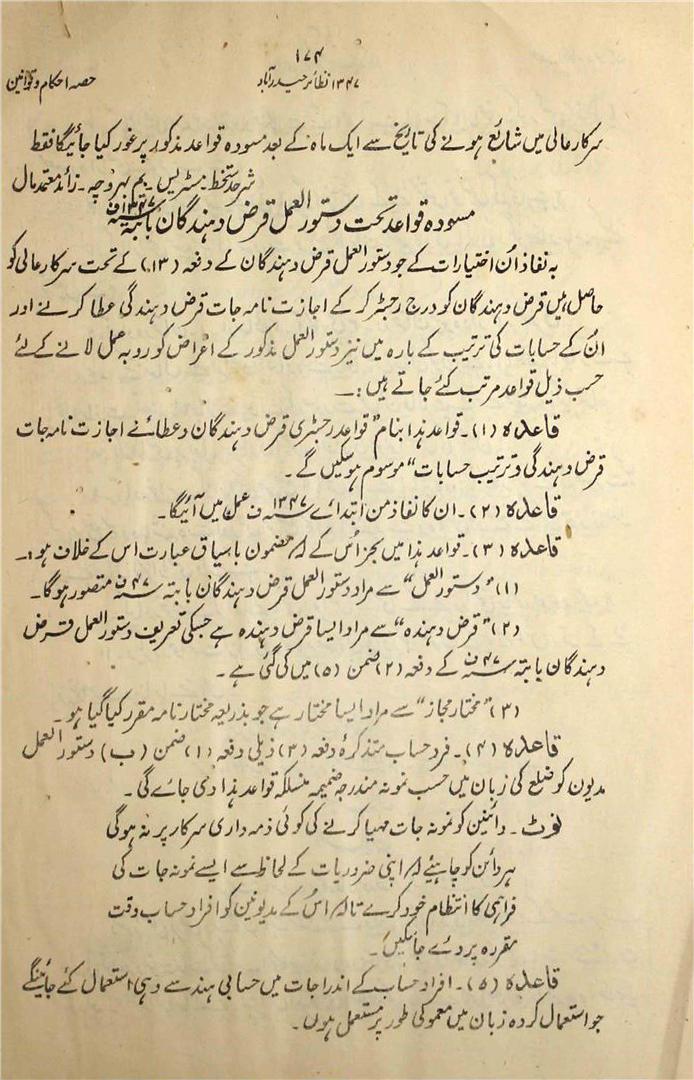 ۱۷۴
۱۳۴۷ نظائر حیدرآباد
حصہ احکام و قوانین
سرکار عالی میں شائع ہونے کی تاریخ سے ایک ماہ کے بعد مسودہ قواعد مذکور پر غور کیا جائیگا فقط
شرحدستخط۔ مسٹریس۔ یم بہروچہ۔ زائد معتمد مال
مسودہ قواعد تحت دستور العمل قرض دہندگان بابتہ ۱۳۴۷ ف
بہ نفاذ اُن اختیارات کے جو دستور العمل قرض دہندگان کے دفعہ (۱۳) کے تحت سرکار عالی کو
حاصل ہیں قرض دہندگان کو درج رجسٹر کر کے اجازت نامہ جات قرض دہندگی عطا کرنے اور
اُن کے حسابات کی ترتیب کے بارہ میں نیز دستور العمل مذکور کے اغراض کو روبہ عمل لانے کے لئے
حسب ذیل قواعد مرتب کئے جاتے ہیں :۔
قاعدہ (۱)۔ قواعد ہذا بنام "قواعد رجسٹری قرض دہندگان و عطائے اجازت نامہ جات
قرض دہندگی و ترتیب حسابات" موسوم ہو سکیں گے۔
قاعدہ (۲)۔ ان کا نفاذ من ابتدائے ۱۳۴۷ ف عمل میں آئیگا۔
قاعدہ (۳)۔ قواعد ہذا میں بجز اس کے کہ مضمون یا سیاق عبارت اس کے خلاف ہو :۔
(۱) "دستور العمل" سے مراد دستور العمل قرض دہندگان بابتہ ۴۷ ف متصور ہوگا۔
(۲) "قرض دہندہ" سے مراد ایسا قرض دہندہ ہے جسکی تعریف دستور العمل قرض
دہندگان بابتہ ۴۷ ف کے دفعہ (۲) ضمن (۵) میں کی گئی ہے۔
(۳) "مختار مجاز" سے مراد ایسا مختار ہے جو بذریعہ مختار نامہ مقرر کیا گیا ہو۔
قاعدہ (۴)۔ فرد حساب متذکرۂ دفعہ (۳) ذیلی دفعہ (۱) ضمن (ب) دستور العمل
مدیون کو ضلع کی زبان میں حسب نمونہ مندرجہ ضمیمہ منسلکہ قواعد ہذا دی جائے گی۔
نوٹ۔ دائنین کو نمونہ جات مہیا کرنے کی کوئی ذمہ داری سرکار پر نہ ہوگی
ہر دائن کو چاہئیے کہ اپنی ضروریات کے لحاظ سے ایسے نمونہ جات کی
فراہمی کا انتظام خود کرے تاکہ اُس کے مدیونین کو افراد حساب وقت
مقررہ پر دئے جاسکیں۔
قاعدہ (۵)۔ افراد حساب کے اندراجات میں حسابی ہندسے وہی استعمال کئے جائینگے
جو استعمال کردہ زبان میں معمولی طور پر مستعمل ہوں۔